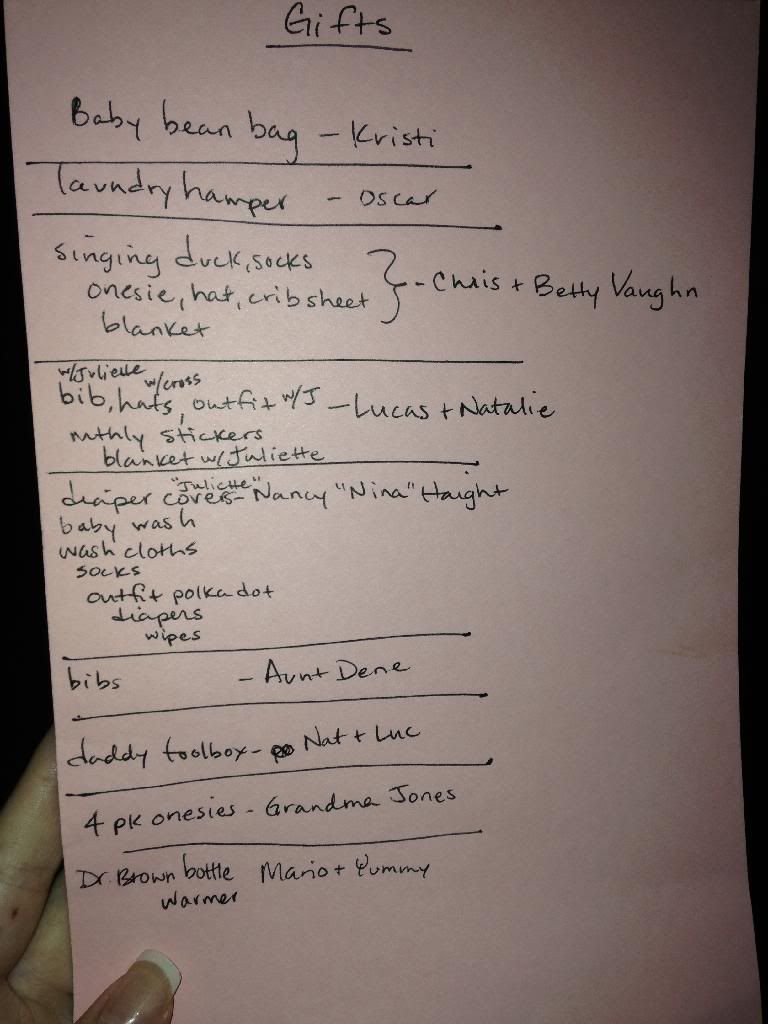 Gifts
Baby bean bag - Kristi
laundry hamper - Oscar
singing duck, socks
onesie, hat, crib sheet } - Chris + Betty Vaughn
blanket
w/Juliette w/cross
bib, hats, outfit w/J - Lucas + Natalie
mthly stickers
blanket w/Juliette
"Juliette"
diaper covers - Nancy "Nina" Haight
baby wash
wash cloths
socks
outfit polka dot
diapers
wipes
bibs - Aunt Dene
daddy toolbox - Nat + Luc
4 pk onesies - Grandma Jones
Dr. Brown bottle Mario + Yummy
warmer